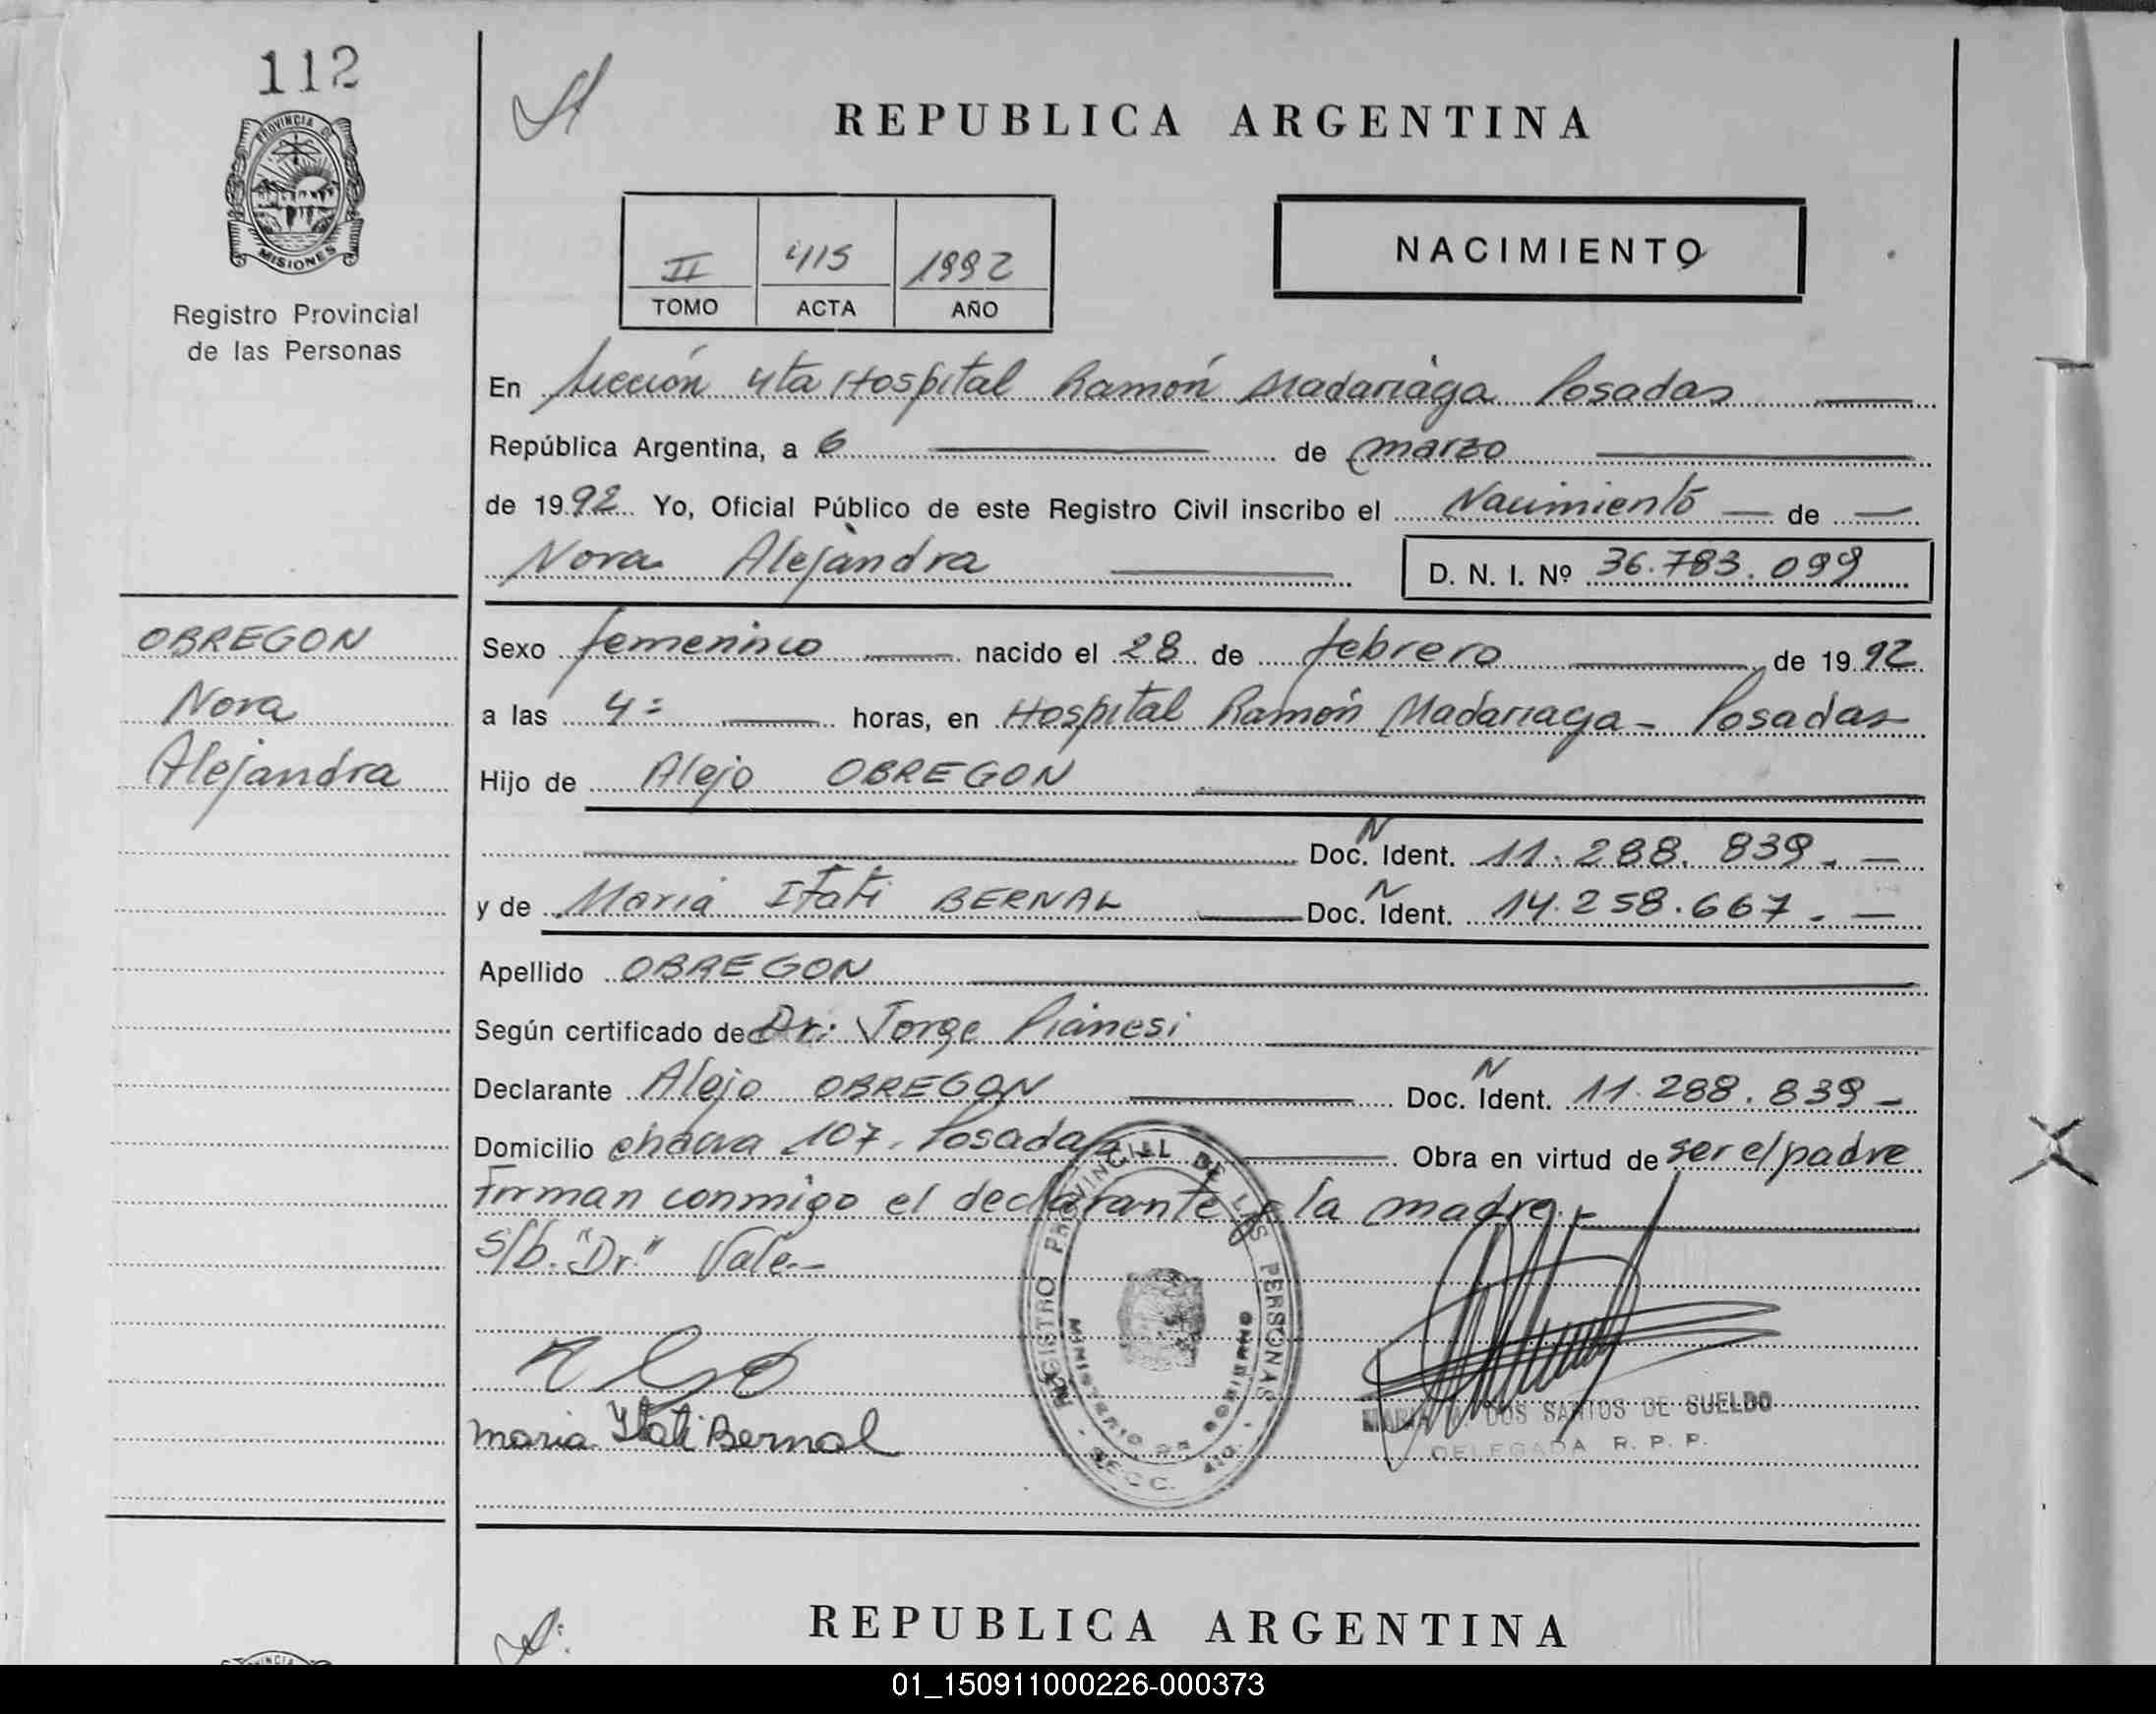 112
PROVINCIA DE
MISIONES
Registro Provincial
de las Personas
OBREGON
Nora
Alejandra
REPUBLICA ARGENTINA
II 415 1992
TOMO ACTA AÑO
NACIMIENTO
En Sección 4ta Hospital Ramón Madariaga Posadas
República Argentina, a 6 de marzo
de 1992 Yo, Oficial Público de este Registro Civil inscribo el Nacimiento de
Nora Alejandra D. N. I. Nº 36.783.099
Sexo femenino nacido el 28 de febrero de 1992
a las 4: horas, en Hospital Ramón Madariaga - Posadas
Hijo de Alejo OBREGON
N
Doc. Ident. 11.288.839.-
y de Maria Itati BERNAL Doc. N Ident. 14.258.667.-
Apellido OBREGON
Según certificado de Dr: Jorge Pianesi
Declarante Alejo OBREGON Doc. N Ident. 11.288.839-
Domicilio chacra 107. Posadas Obra en virtud de ser el padre
Firman conmigo el declarante y la madre.-
s/b. "Dr" Vale.-
REGISTRO PROVINCIAL DE LAS PERSONAS
MINISTERIO DE GOBIERNO
SECC. 4ta.
maria Itati Bernal
MARIA DOS SANTOS DE SUELDO
DELEGADA R. P. P.
REPUBLICA ARGENTINA
01_150911000226-000373